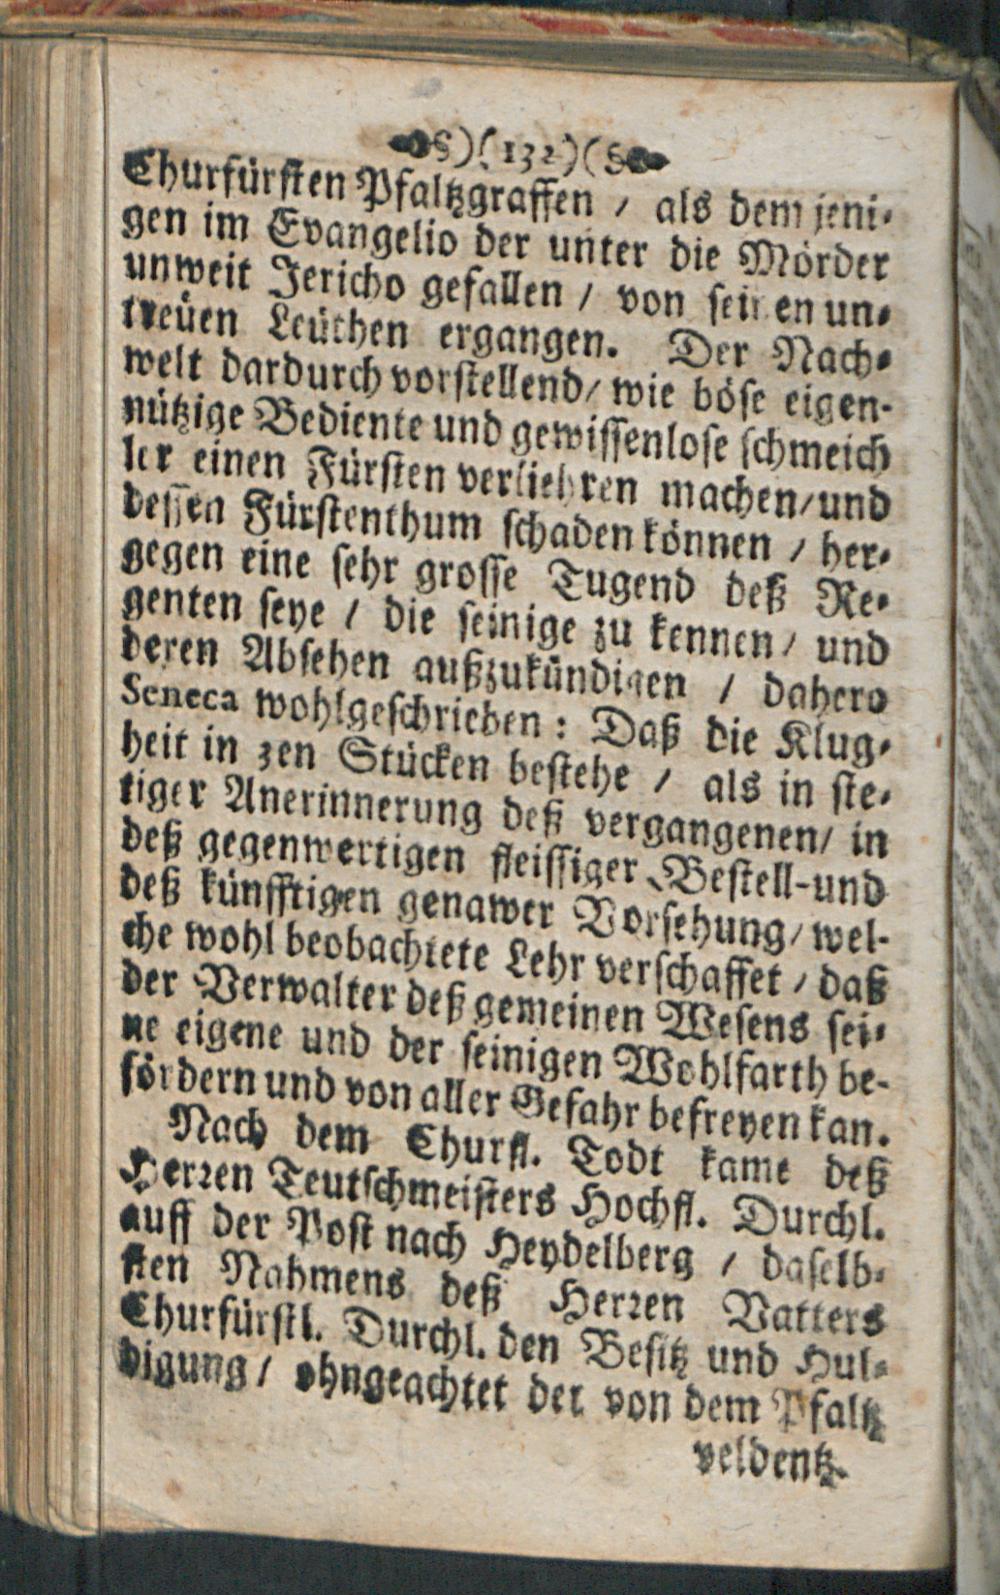 §)(132)(§
Churfürsten Pfaltzgraffen / als dem jeni-
gen im Evangelio der unter die Mörder
unweit Jericho gefallen / von seinen un-
treüen Leüthen ergangen. Der Nach-
welt dardurch vorstellend/ wie böse eigen-
nützige Bediente und gewissenlose schmeich
ler einen Fürsten verliehren machen/und
dessen Fürstenthum schaden können / her-
gegen eine sehr grosse Tugend deß Re-
genten seye / die seinige zu kennen/ und
deren Absehen außzukündigen / dahero
Seneca wohlgeschrieben: Daß die Klug-
heit in 3en Stücken bestehe / als in ste-
tiger Anerinnerung deß vergangenen/ in
deß gegenwertigen fleissiger Bestell-und
deß künfftigen genawer Vorsehung/ wel-
che wohl beobachtete Lehr verschaffet / daß
der Verwalter deß gemeinen Wesens sei-
ne eigene und der seinigen Wohlfarth be-
fördern und von aller Gefahr befreyen kan.
Nach dem Churfl. Todt kame deß
Herren Teutschmeisters Hochfl. Durchl.
auff der Post nach Heydelberg / daselb-
sten Nahmens deß Herren Vatters
Churfürstl. Durchl. den Besitz und Hul-
digung/ ohngeachtet der von dem Pfaltz
veldentz-